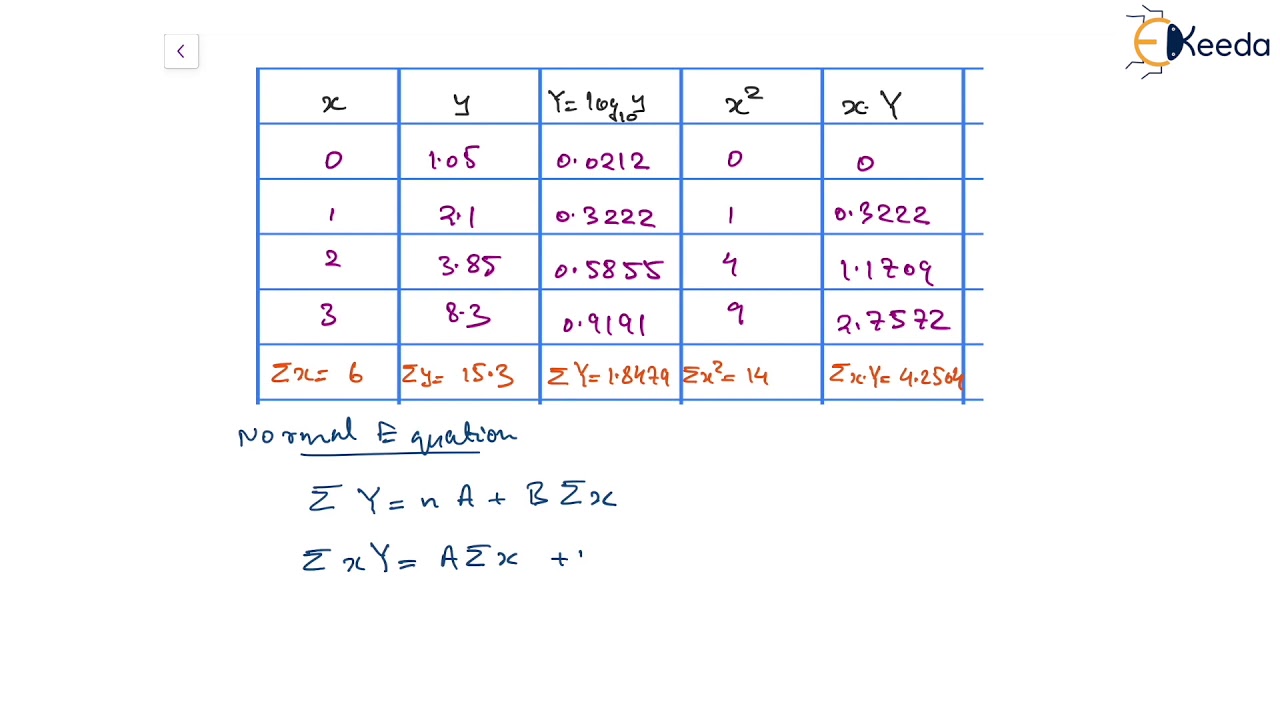 EKeeda
<
x y Y= log₁₀y x² x·Y
0 1.05 0.0212 0 0
1 2.1 0.3222 1 0.3222
2 3.85 0.5855 4 1.1709
3 8.3 0.9191 9 2.7572
Σx= 6 Σy= 15.3 ΣY=1.8479 Σx²= 14 Σx.Y= 4.2504
Normal Equation
ΣY= nA + BΣx
ΣxY= AΣx +